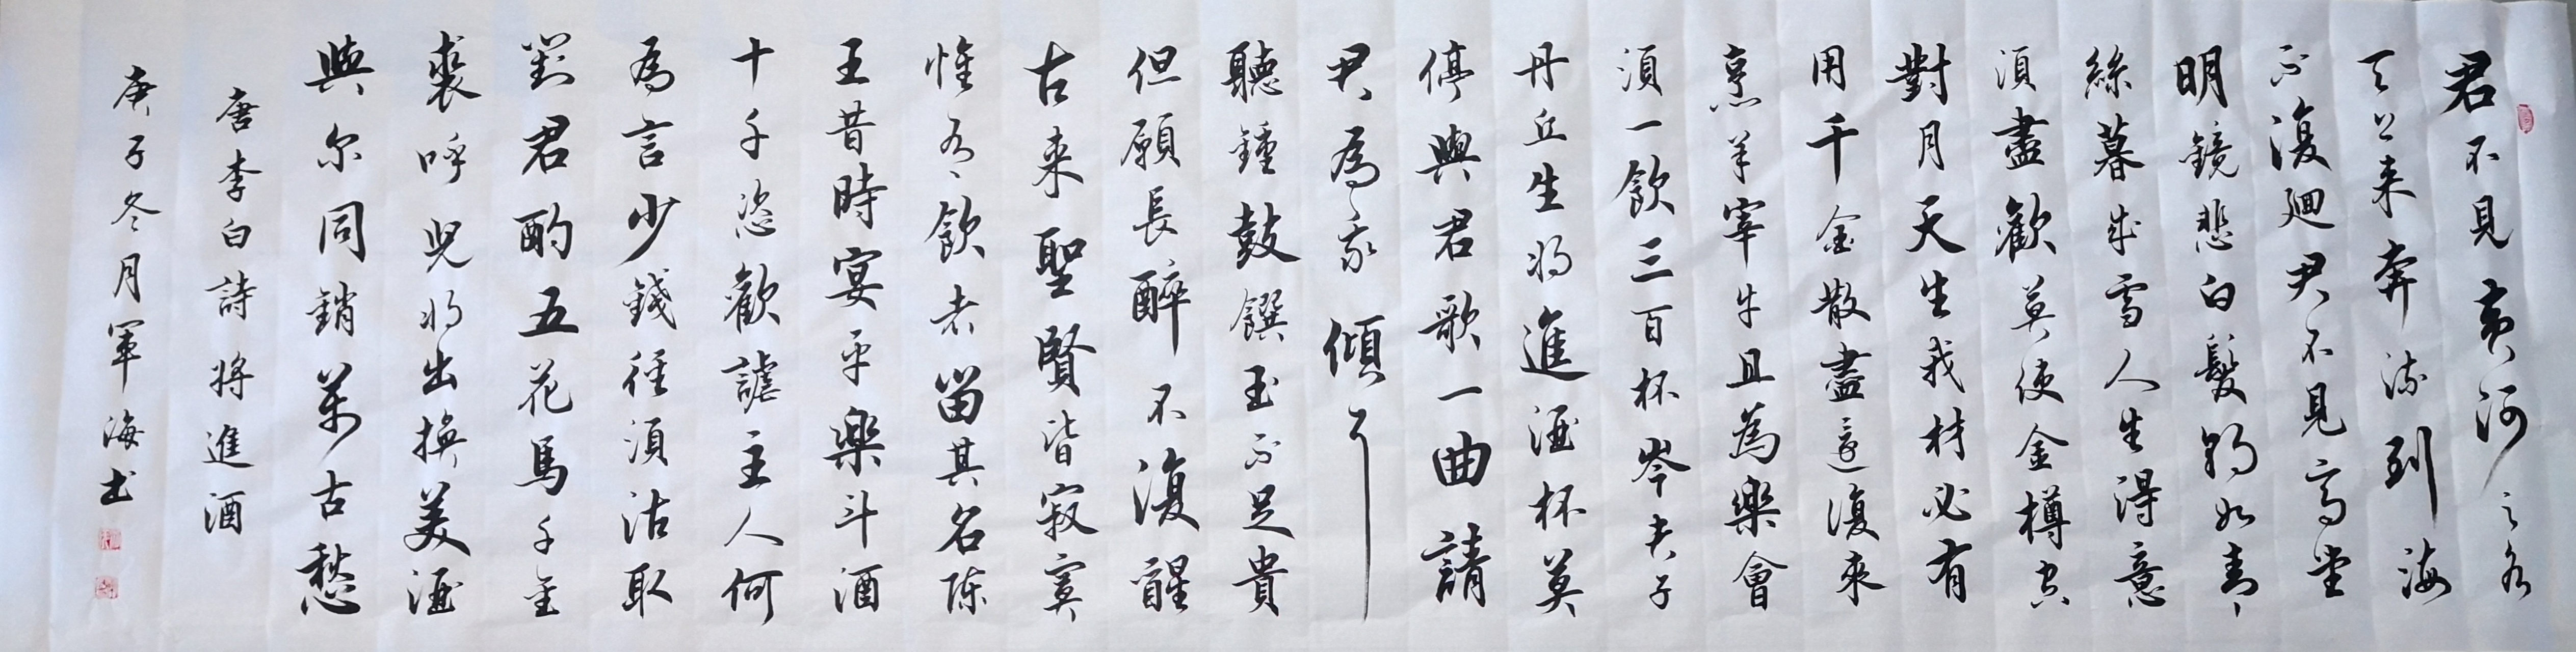 君不見黃河之水
天上来奔流到海
不復迴君不見高堂
明鏡悲白髮朝如青
絲暮成雪人生得意
須盡歡莫使金樽空
對月天生我材必有
用千金散盡還復來
烹羊宰牛且為樂會
須一飲三百杯岑夫子
丹丘生将進酒杯莫
停與君歌一曲請
君為我傾耳
聽鍾鼓饌玉不足貴
但願長醉不復醒
古来聖賢皆寂寞
惟有飲者留其名陈
王昔時宴平樂斗酒
十千恣歡謔主人何
為言少錢徑須沽取
對君酌五花馬千金
裘呼児将出換美酒
與尔同銷萬古愁
唐李白詩將進酒
庚子冬月軍海书